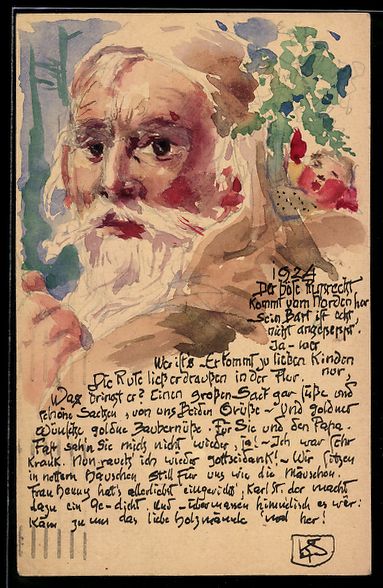 1924
Der böse Ruprecht
Kommt vom Norden her
Sein Bart ist echt
nicht angepappt.
Ja – wer
Wer ists – Er kommt zu lieben Kindern
nur,
Die Rute ließ er draußen in der Flur.
Was bringt er? Einen großen Sack gar süße und
schöne Sachen, von uns Beiden Grüße – Und goldne
Wünsche goldne Zaubernüße. Für Sie und den Papa.
Fast sah'n Sie mich nicht wieder, ja! – Ich war sehr
Krank. Nun rauch ich wieder gottseidank! – Wir sitzen
in nettem Häuschen still für uns wie die Mäuschen.
Frau Henny hat's allerliebst eingericht', Karl st. der macht
dazu ein Ge-dicht. Und – übermaßen himmlisch es wär:
Käm zu uns das liebe Holzmännle mal her!